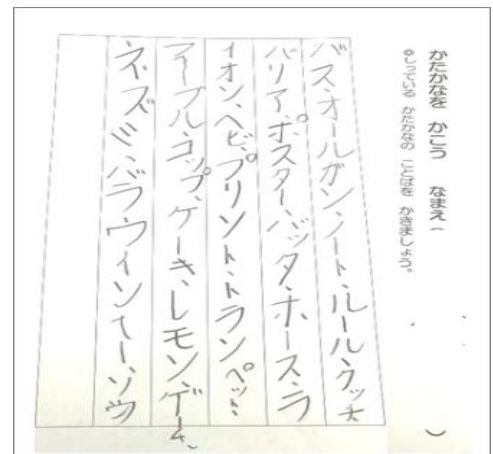 かたかなを かこう なまえ( )
◎しっている かたかなの ことばを かきましょう。
バス、オールガン、ノート、ルール、クッキ
バリア、ポスター、バッタ、ホース、ラ
イオン、ヘビ、プリント、トランペット、
テーブル、コップ、ケーキ、レモン、ゲーム、
ネズミ、バラ、ウィンナー、ゾウ